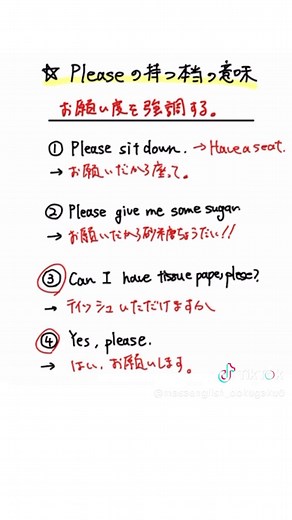 ☆ Pleaseの持つ本当の意味
お願い度を強調する。
① Please sit down. → Have a seat.
→ お願いだから座って。
② Please give me some sugar
→ お願いだから砂糖ちょうだい!!
③ Can I have tissue paper, plese?
→ ティッシュいただけますか
④ Yes, please.
→ はい、お願いします。
TikTok